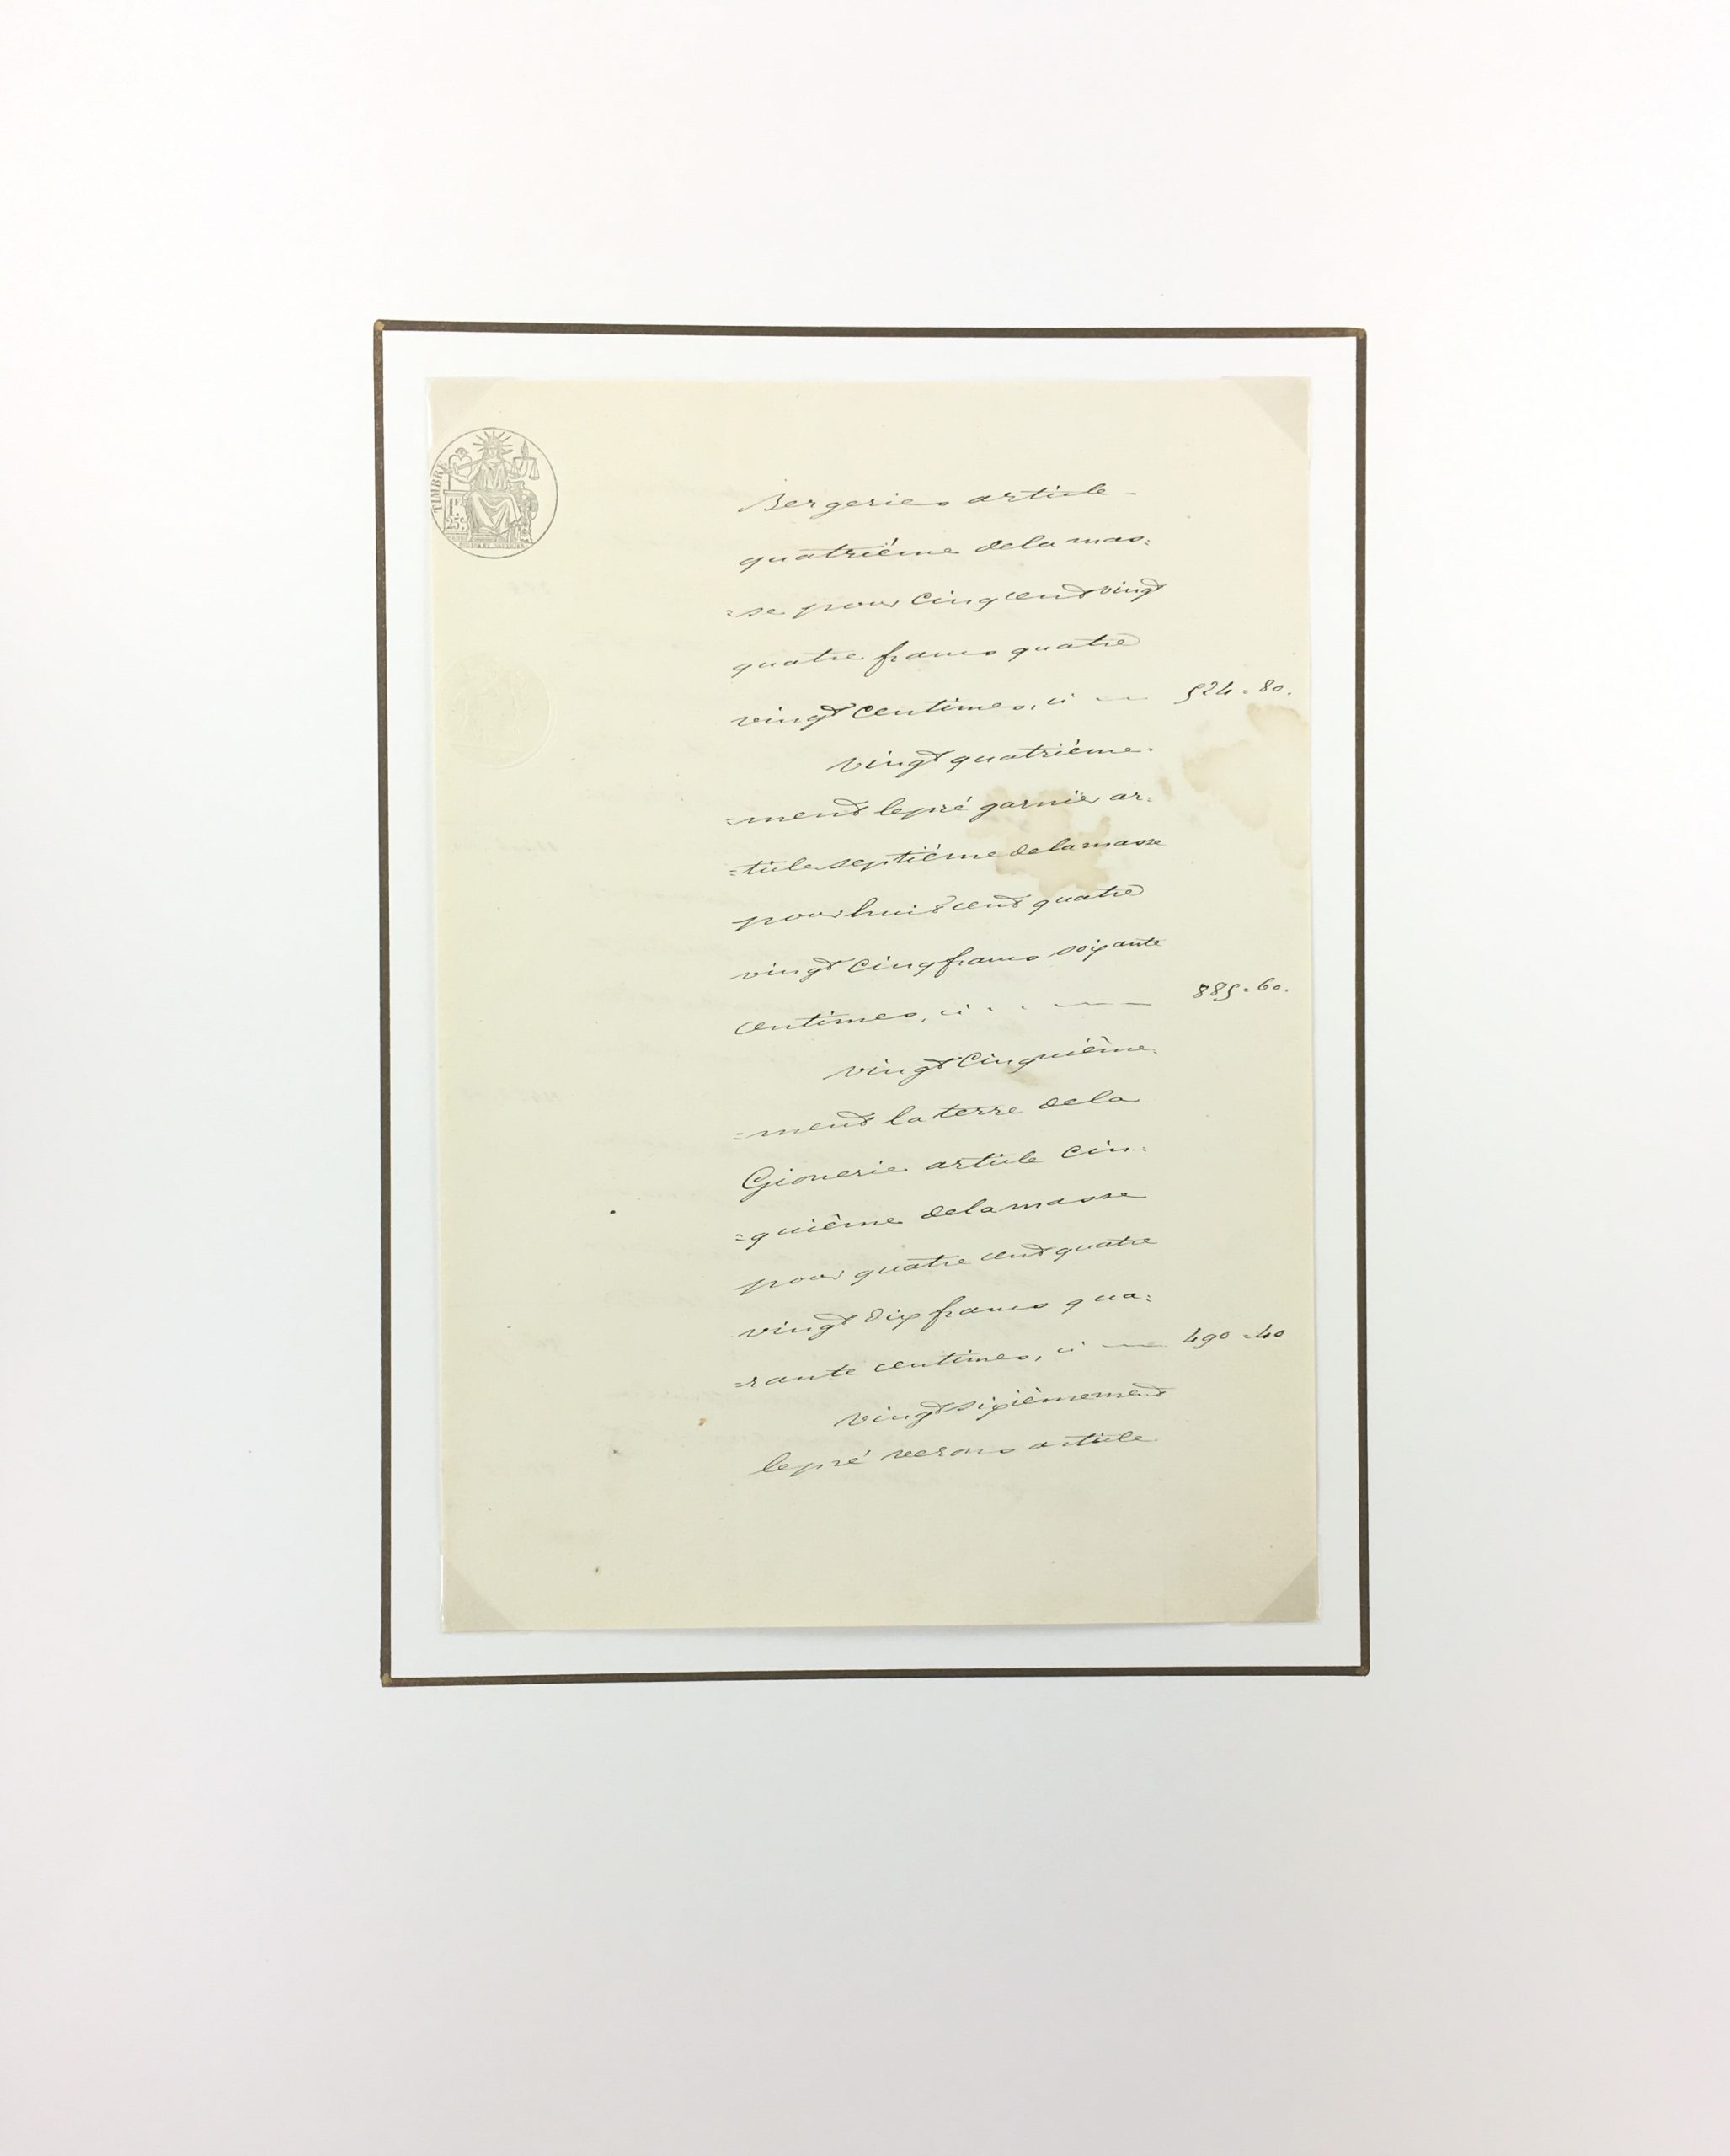 TIMBRE
1F.
25c.
Bergeries article
quatrième dela mas:
=se pour Cinq cent vingt
quatre francs quatre
vingt centimes, ci — 524=80.
vingt quatrième.
=ment le pré garnier ar:
=ticle septième dela masse
pour huit cent quatre
vingt Cinq francs soixante
centimes, ci . . — 885=60.
vingt Cinquième.
=ment la terre dela
article Cin:
=quième dela masse
pour quatre cent quatre
vingt dix francs qua:
=rante centimes, ci — 490=40
vingt sixièmement
le pré article